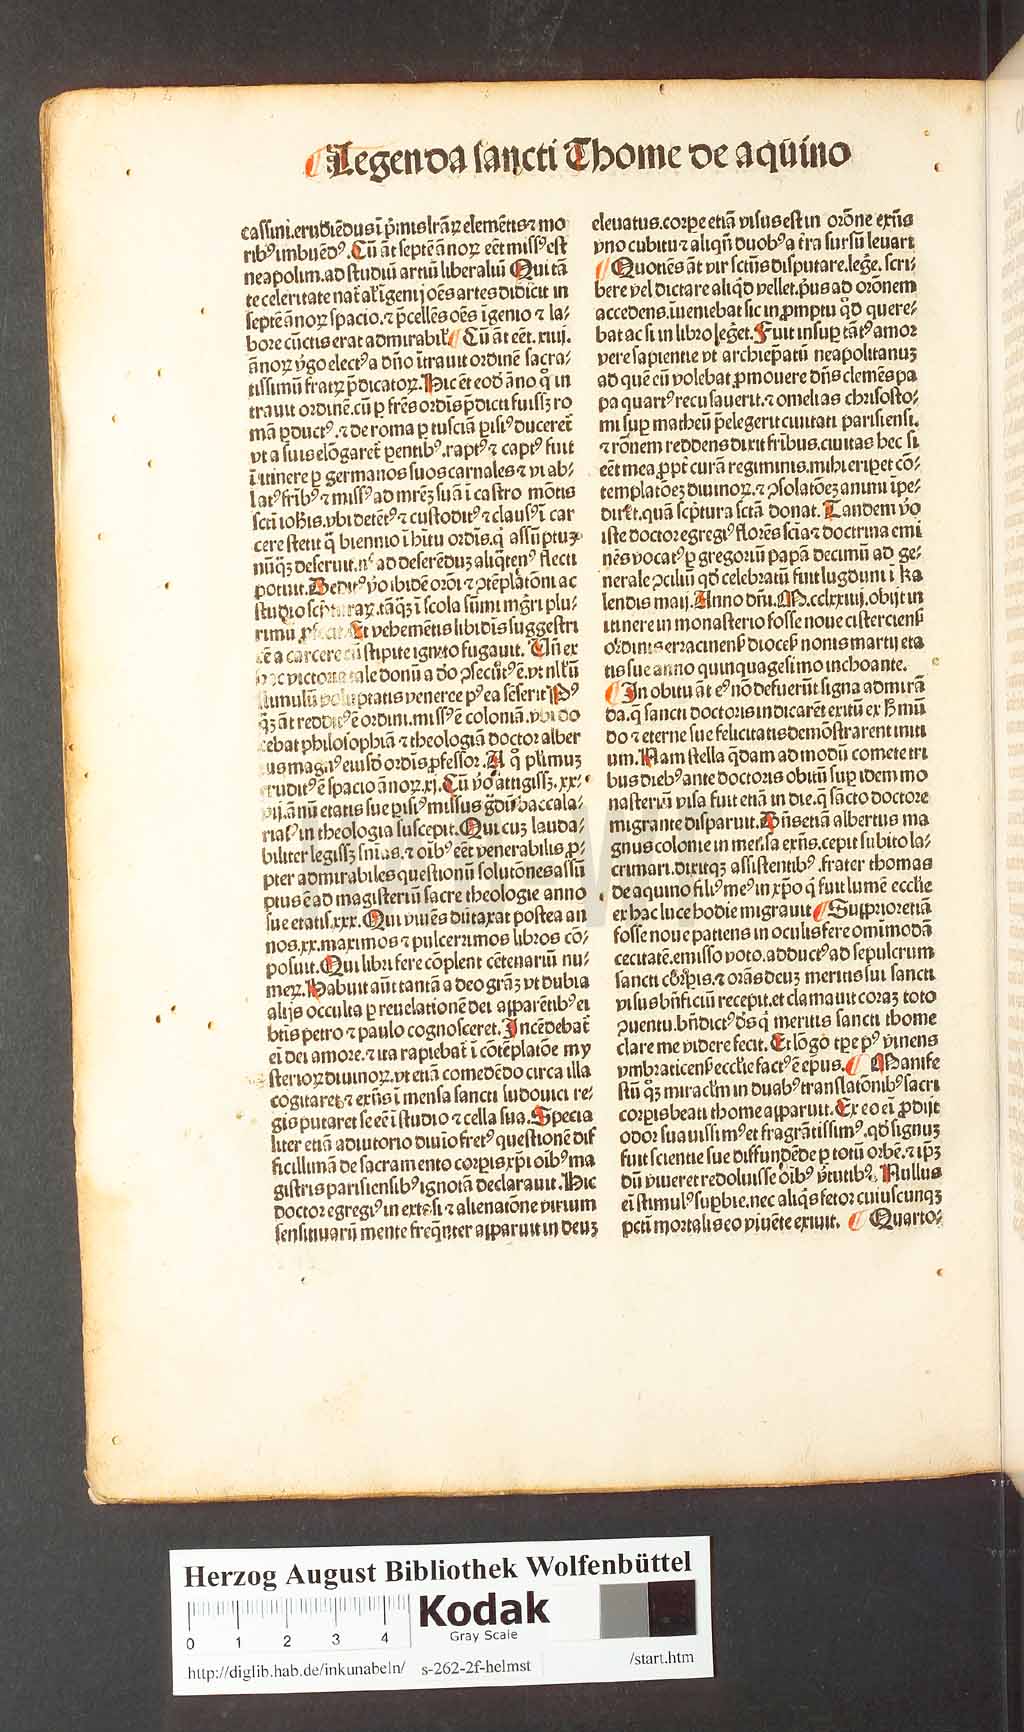 ¶ Legenda sancti Thome de aqūino
cassini.erudiēdus ī p̄mis lr̄aꝝ elemētis ⁊ mo
ribꝰ imbuēdꝰ. Cū āt septē ānoꝝ eēt missꝰ est
neapolim.ad studiū artiū liberaliū Qui tā
te celeritate nat̄ atꝫ īgenij oēs artes didicit in
septē ānoꝝ spacio.⁊ p̄cellēs oēs īgenio ⁊ la⸗
bore cūctis erat admirabilꝭ ¶ Cū āt eēt.xiiij.
ānoꝝ v̄go electꝰ a dn̄o ītrauit ordinē sacra⸗
tissimū fratꝝ p̄dicatoꝝ. Hic ēt eod̄ āno qͦ in
trauit ordinē.cū ꝑ fr̄es ordīs p̄dicti fuissꝫ ro
mā ꝑductꝰ.⁊ de roma ꝑ tusciā ꝑisiꝰ duceret̄
vt a suis elōgaret̄ ꝑentibꝰ.raptꝰ ⁊ captꝰ fuit
ī itinere ꝑ germanos suos carnales ⁊ vi ab⸗
latꝰ fr̄ibꝰ ⁊ missꝰ ad mr̄eꝫ suā ī castro mōtis
sct̄i ioh̄is.vbi detētꝰ ⁊ custoditꝰ ⁊ clausꝰ ī car
cere stetit q̄ biennio ī h̄itu ordīs.qͥ assūptuꝫ
nūq̄ꝫ deseruit.nͨ ad deserēduꝫ aliq̄tenꝰ flecti
potuit. Deditꝰ v̄o ibidē or̄oi ⁊ ↄtēplatōni ac
studio scripturaꝝ.tāq̄ꝫ ī scola sūmi mḡri plu⸗
rimū ꝓfecit. Et vehemētis libidīs suggestri
cē a carcere cū stipite ignito fugauit. Un̄ ex
hac victoria tale donū a dō ↄsecutꝯ ē.vt nl̄l̄ū
stimulū voluptatis veneree pꝰ ea sēserit Pꝰ
q̄ꝫ āt redditꝰ ē ordini.missꝰ ē coloniā.vbi do
cebat philosophiā ⁊ theologiā doctor alber
tus magnꝰ eiusd̄ ordīs ꝓfessor. A qͦ plīmuꝫ
eruditꝰ ē spacio ānoꝝ.xj. Cū v̄o attigissꝫ.xx⸗
vij.ānū etatis sue ꝑisiꝰ missus gͣdū baccala⸗
riatꝰ in theologia suscepit. Qui cuꝫ lauda⸗
biliter legissꝫ sn̄ias.⁊ oībꝰ eēt venerabilis ꝓ⸗
pter admirabiles questionū solutōnes assū
ptus ē ad magisteriū sacre theologie anno
sue etatis.xxx. Qui viuēs dūtaxat postea an
nos.xx.maximos ⁊ pulcerrimos libros cō⸗
posuit. Qui libri fere cōplent cētenariū nu⸗
meꝝ. Habuit aūt tantā a deo grām̄ vt dubia
alijs occulta ꝑ reuelationē dei apparētibꝰ ei
btīs petro ⁊ paulo cognosceret. Incēdebat̄
eī dei amore.⁊ ita rapiebat̄ ī cōtēplatōe my
sterioꝝ diuinoꝝ.vt etiā comedēdo circa illa
cogitaret.⁊ exn̄s ī mensa sancti ludouici re⸗
gis putaret se eē ī studio ⁊ cella sua. Specia
liter etiā adiutorio diuīo fretꝰ questionē dif
ficillimā de sacramento corꝑis xp̄i oībꝰ ma
gistris parisiensibꝰ ignotā declarauit. Hic
doctor egregiꝰ in extasi ⁊ alienatōne virium
sensituarū mente freq̄nter apparuit in deuꝫ
eleuatus.corꝑe etiā visus est in orōne exn̄s
vno cubitu ⁊ aliqn̄ duobꝰ a tr̄a sursū leuari
¶ Quotiēs āt vir sct̄us disputare.legē̄.scri⸗
bere vel dictare aliqͥd vellet.pͥus ad orōnem
accedens.īueniebat sic in ꝓmptu qͦd quere⸗
bat ac si in libro leḡet. Fuit insuꝑ tātꝰ amor
vere sapientie vt archiep̄atū neapolitanuꝫ
ad quē eū volebat ꝓmouere dn̄s clemēs pa
pa quartꝰ recusauerit.⁊ omelias chrisosto⸗
mi suꝑ matheū p̄elegerit ciuitati parisiensi.
⁊ rōnem reddens dixit fr̄ibus.ciuitas hec si
eēt mea ꝓpt̄ curā regiminis.mihi eriꝑet cō⸗
templatōeꝫ diuinoꝝ.⁊ ↄsolatōeꝫ animi īpe⸗
diret.quā scp̄tura sctā donat. Tandem v̄o
iste doctor egregiꝰ florēs sciā ⁊ doctrina emi
nēs vocatꝰ ꝑ gregoriū papā decimū ad ge⸗
nerale ↄciliū qd̄ celebratū fuit lugduni ī ka
lendis maij. Anno dn̄i.M.cclxxiiij.obijt in
itinere in monasterio fosse noue cistercienꝭ
ordinis terracinenꝭ dioceꝭ nonis martij eta
tis sue anno quinquagesimo inchoante.
¶ In obitu āt eꝰ nō defuerūt signa admirā
da.q̄ sancti doctoris indicarēt exitū ex h̄ mū
do ⁊ eterne sue felicitatis demōstrarent initi
um. Nam stella q̄dam ad modū comete tri
bus diebꝰ ante doctoris obitū suꝑ idem mo
nasteriū visa fuit etiā in die.q̄ sācto doctore
migrante disparuit. Dn̄s etiā albertus ma
gnus colonie in mensa exn̄s.cepit subito la⸗
crimari.dixitqꝫ assistentibꝰ.frater thomas
de aquino filiꝰ meꝰ in xp̄o qͥ fuit lumē eccl̄ie
ex hac luce hodie migrauit ¶ Supprior etiā
fosse noue patiens in oculis fere omīmodā
cecitatē.emisso voto.adductꝰ ad sepulcrum
sancti corꝑis.⁊ orās deuꝫ meritis sui sancti
visus bn̄ficiū recepit.et clamauit coraꝫ toto
ↄuentu.bn̄dictꝰ dꝰs qͥ meritis sancti thome
clare me videre fecit. Et lōgo tꝑe pꝰ viuens
vmbraticenꝭ eccl̄ie factꝰ ē ep̄us. ¶ Manife
stū qꝫ miraclm̄ in duabꝰ translatōnibꝰ sacri
corꝑis beati thome apparuit. Ex eo eī ꝓdijt
odor suauissimꝰ et fragrātissimꝰ.qd̄ signuꝫ
fuit scientie sue diffundēde ꝑ totū orbē.⁊ ip̄ꝫ
dū viueret redoluisse oībꝰ v̄tutibꝰ. Nullus
eī stimulꝰ suꝑbie.nec aliqͥs fetor cuiuscunqꝫ
pctī mortalis eo viuēte exiuit. ¶ Quarto⸗
Herzog August Bibliothek Wolfenbüttel
0 1 2 3 4
Kodak
Gray Scale
http://diglib.hab.de/inkunabeln/ s-262-2f-helmst /start.htm